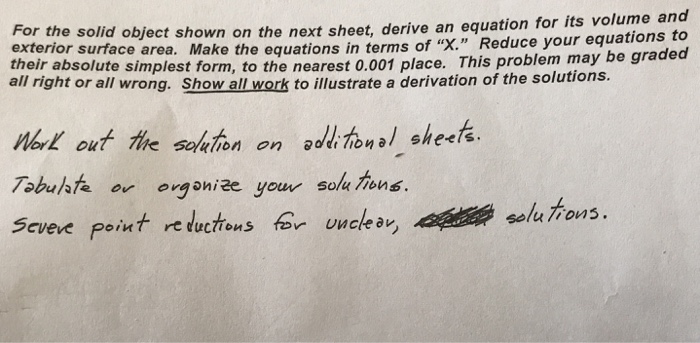 For the solid object shown on the next sheet, derive an equation for its volume and
exterior surface area. Make the equations in terms of “X.” Reduce your equations to
their absolute simplest form, to the nearest 0.001 place. This problem may be graded
all right or all wrong. Show all work to illustrate a derivation of the solutions.
Work out the solution on additional sheets.
Tabulate or organize your solutions.
Severe point reductions for unclear, solutions.